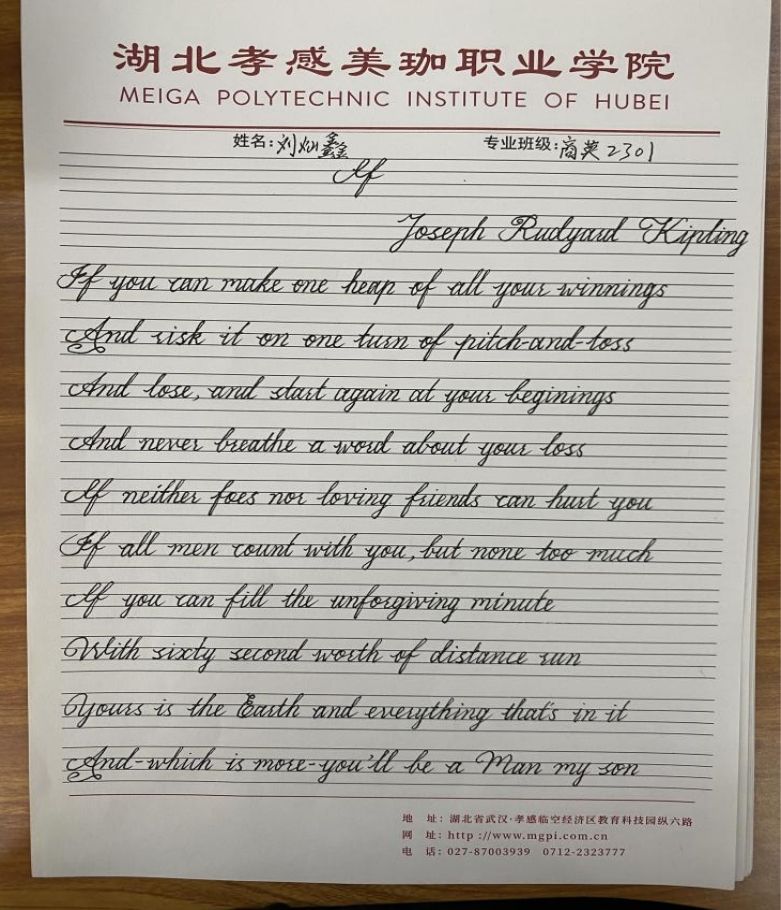 湖北孝感美珈职业学院
MEIGA POLYTECHNIC INSTITUTE OF HUBEI
姓名:刘灿鑫 专业班级:商英2301
If
Joseph Rudyard Kipling
If you can make one heap of all your winnings
And risk it on one turn of pitch-and-toss
And lose, and start again at your beginings
And never breathe a word about your loss
If neither foes nor loving friends can hurt you
If all men count with you, but none too much
If you can fill the unforgiving minute
With sixty second worth of distance run
Yours is the Earth and everything that's in it
And-which is more-you'll be a Man my son
地 址: 湖北省武汉·孝感临空经济区教育科技园纵六路
网 址: http://www.mgpi.com.cn
电 话: 027-87003939 0712-2323777